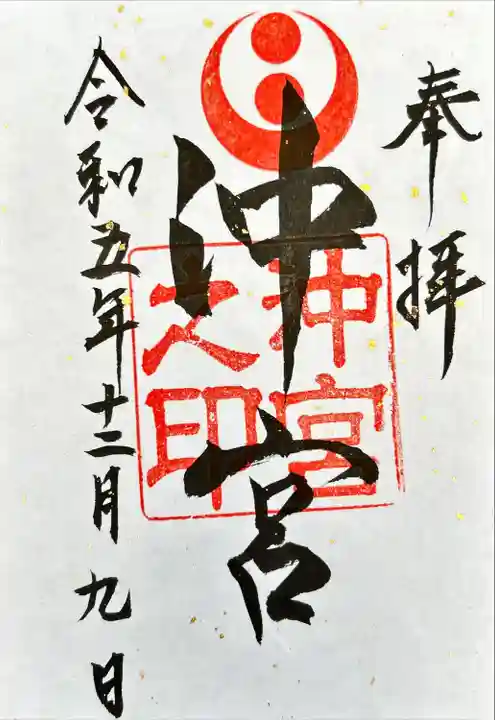 奉拝
沖宮
沖宮
之印
令和五年十二月九日